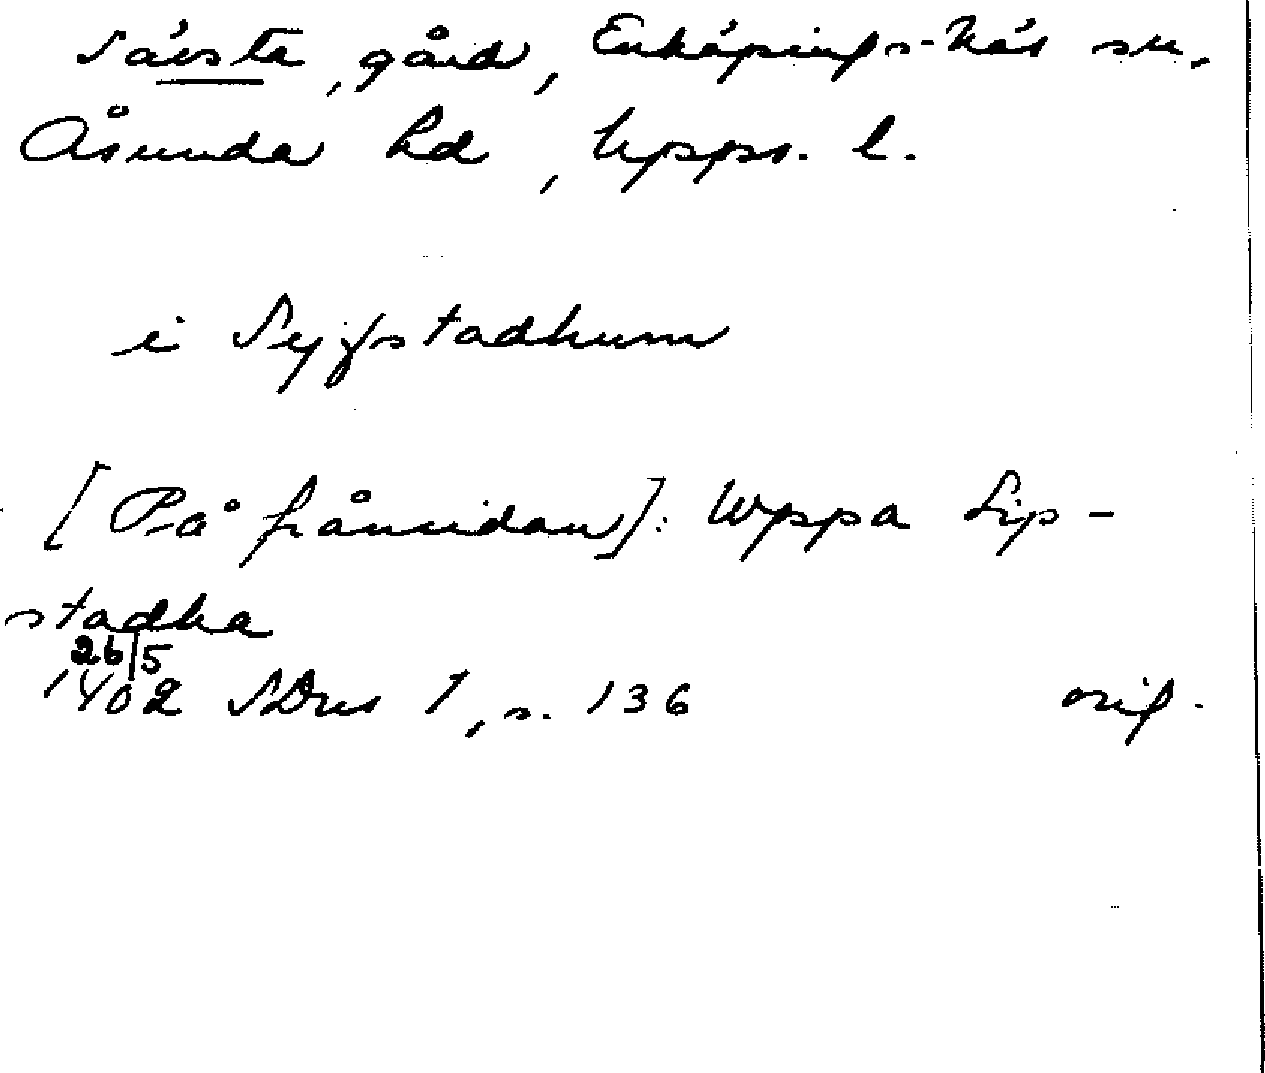 Sävsta, gård, Enköpings-Näs sn,
Åsunda hd, Upps. l.
i Seyfstadhum
[På frånsidan]: Wppa Sip-
stadha
26/5
1402 SDns 1, s. 136 orig.